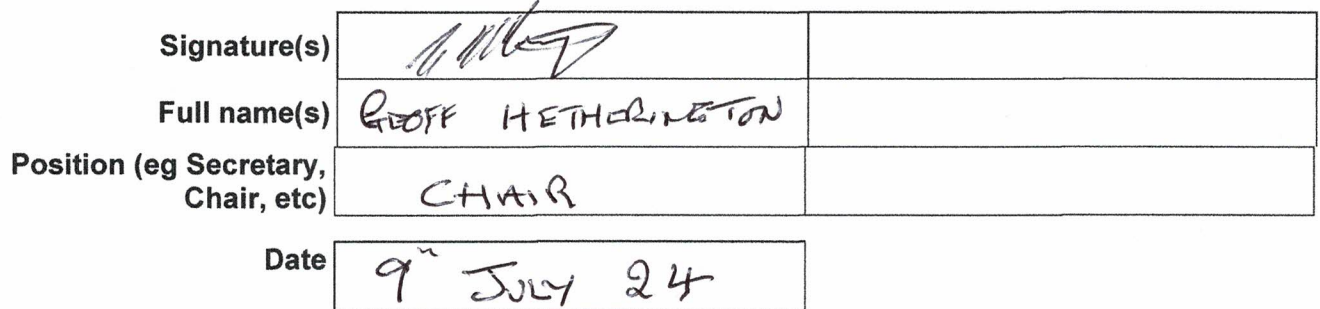 Signature(s)
Full name(s) GEOFF HETHERINGTON
Position (eg Secretary,
Chair, etc) CHAIR
Date 9th JULY 24